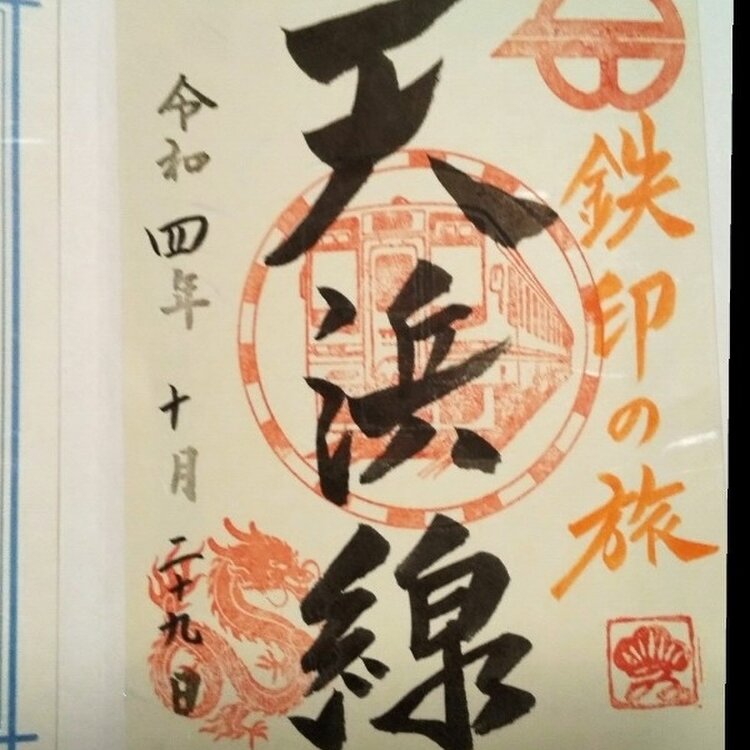 鉄印の旅
天浜線
令和四年十月二十九日